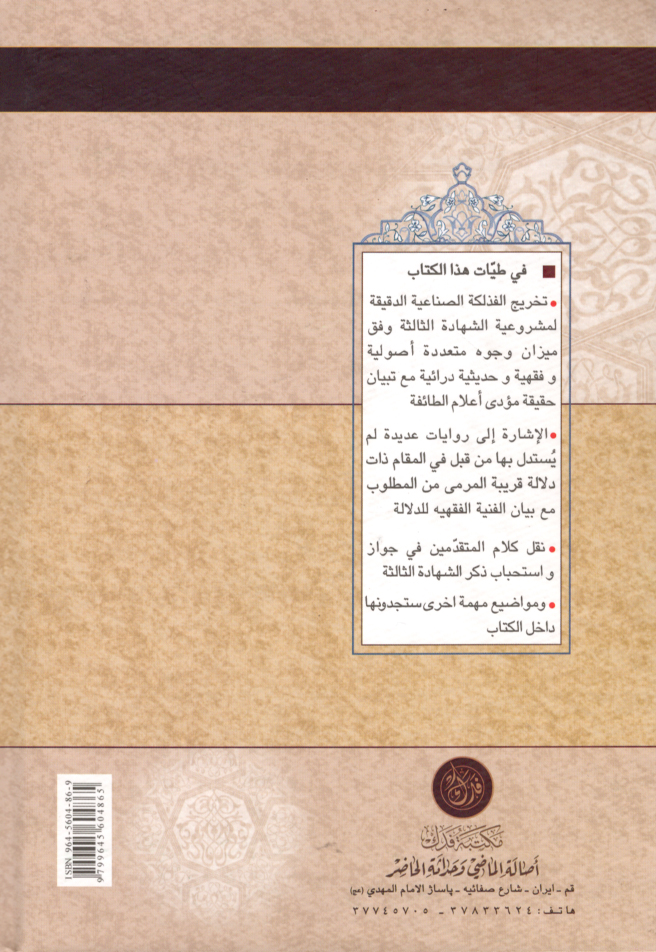 في طيّات هذا الكتاب
تخريج الفذلكة الصناعية الدقيقة
لمشروعية الشهادة الثالثة وفق
ميزان وجوه متعددة أصولية
و فقهية و حديثية درائية مع تبيان
حقيقة مؤدى أعلام الطائفة
الإشارة إلى روايات عديدة لم
يُستدل بها من قبل في المقام ذات
دلالة قريبة المرمى من المطلوب
مع بيان الفنية الفقهيه للدلالة
نقل كلام المتقدّمين في جواز
و استحباب ذكر الشهادة الثالثة
ومواضيع مهمة اخرى ستجدونها
داخل الكتاب
فدك
مكتبة فدك
أصالة الماضي وحداثة الحاضر
قم ـ ايران ـ شارع صفائيه ـ پاساژ الامام المهدي (عج)
هاتف: ٣٧٨٣٣٦٢٤ ـ ٣٧٧٤٥٧٠٥
ISBN 964-5604-86-9
9799645604865